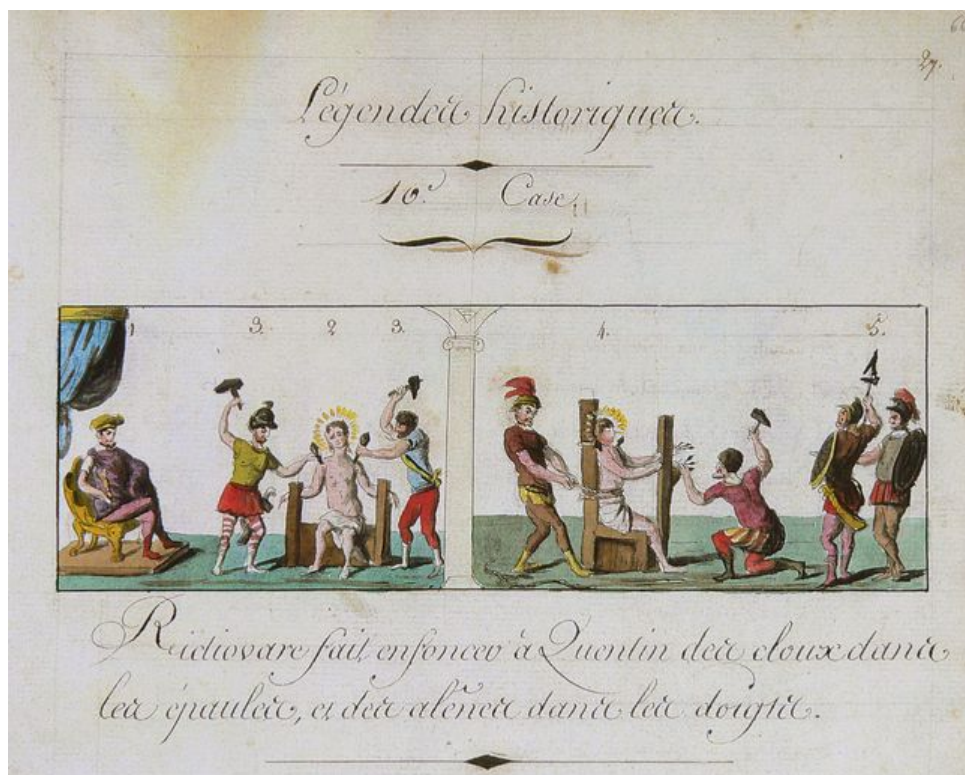 27.
Légendes historiques.
10.e Case.
1 3. 2 3. 4. 5.
Rictiovare fait enfoncer à Quentin des cloux dans
les épaules, et des alênes dans les doigts.